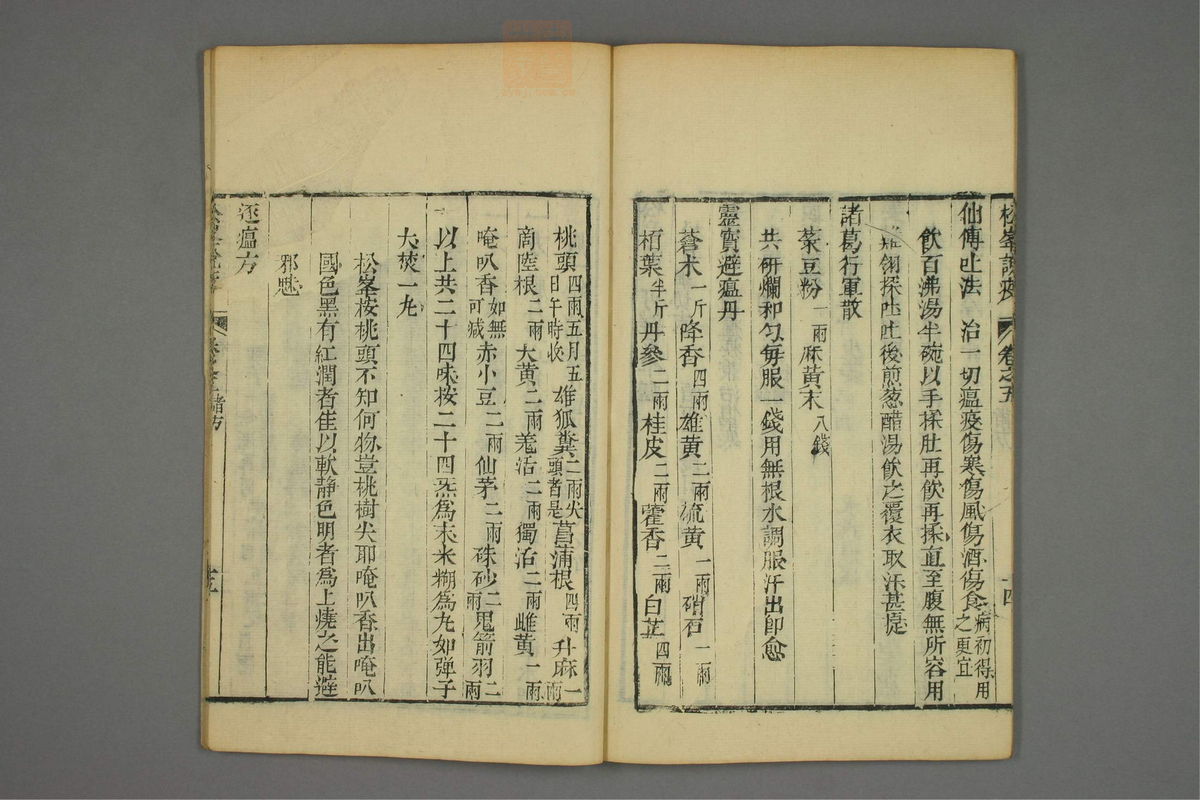 松峯說疫 卷之五 十四
仙傳吐法 治一切瘟疫傷寒傷風傷酒傷食病初得用之更宜
飲百沸湯半碗以手揉肚再飲再揉直至腹無所容用
雞翎探吐吐後煎葱醋湯飲之覆衣取汗甚捷
諸葛行軍散
菉豆粉一兩麻黃末八錢
共研爛和勻每服一錢用無根水調服汗出即愈
靈寳避瘟丹
蒼术一斤降香四兩雄黃二兩硫黃一兩硝石一兩
栢葉半斤丹參二兩桂皮二兩藿香二兩白芷四兩
桃頭四兩五月五日午時收雄狐糞二兩尖頭者是菖蒲根四兩升麻一兩
商陸根二兩大黃二兩羌活二兩獨活二兩雌黃一兩
唵叭香如無可减赤小豆二兩仙茅二兩硃砂二兩鬼箭羽二兩
以上共二十四味按二十四炁為末米糊為丸如彈子
大焚一丸
松峯按桃頭不知何物豈桃樹尖耶唵叭香出唵叭
國色黑有紅潤者佳以軟静色明者為上燒之能避
邪魅
逐瘟方
諸方